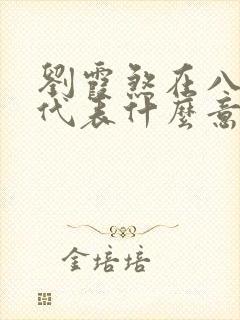 劉霞煞在八
代表什麼意
金培培